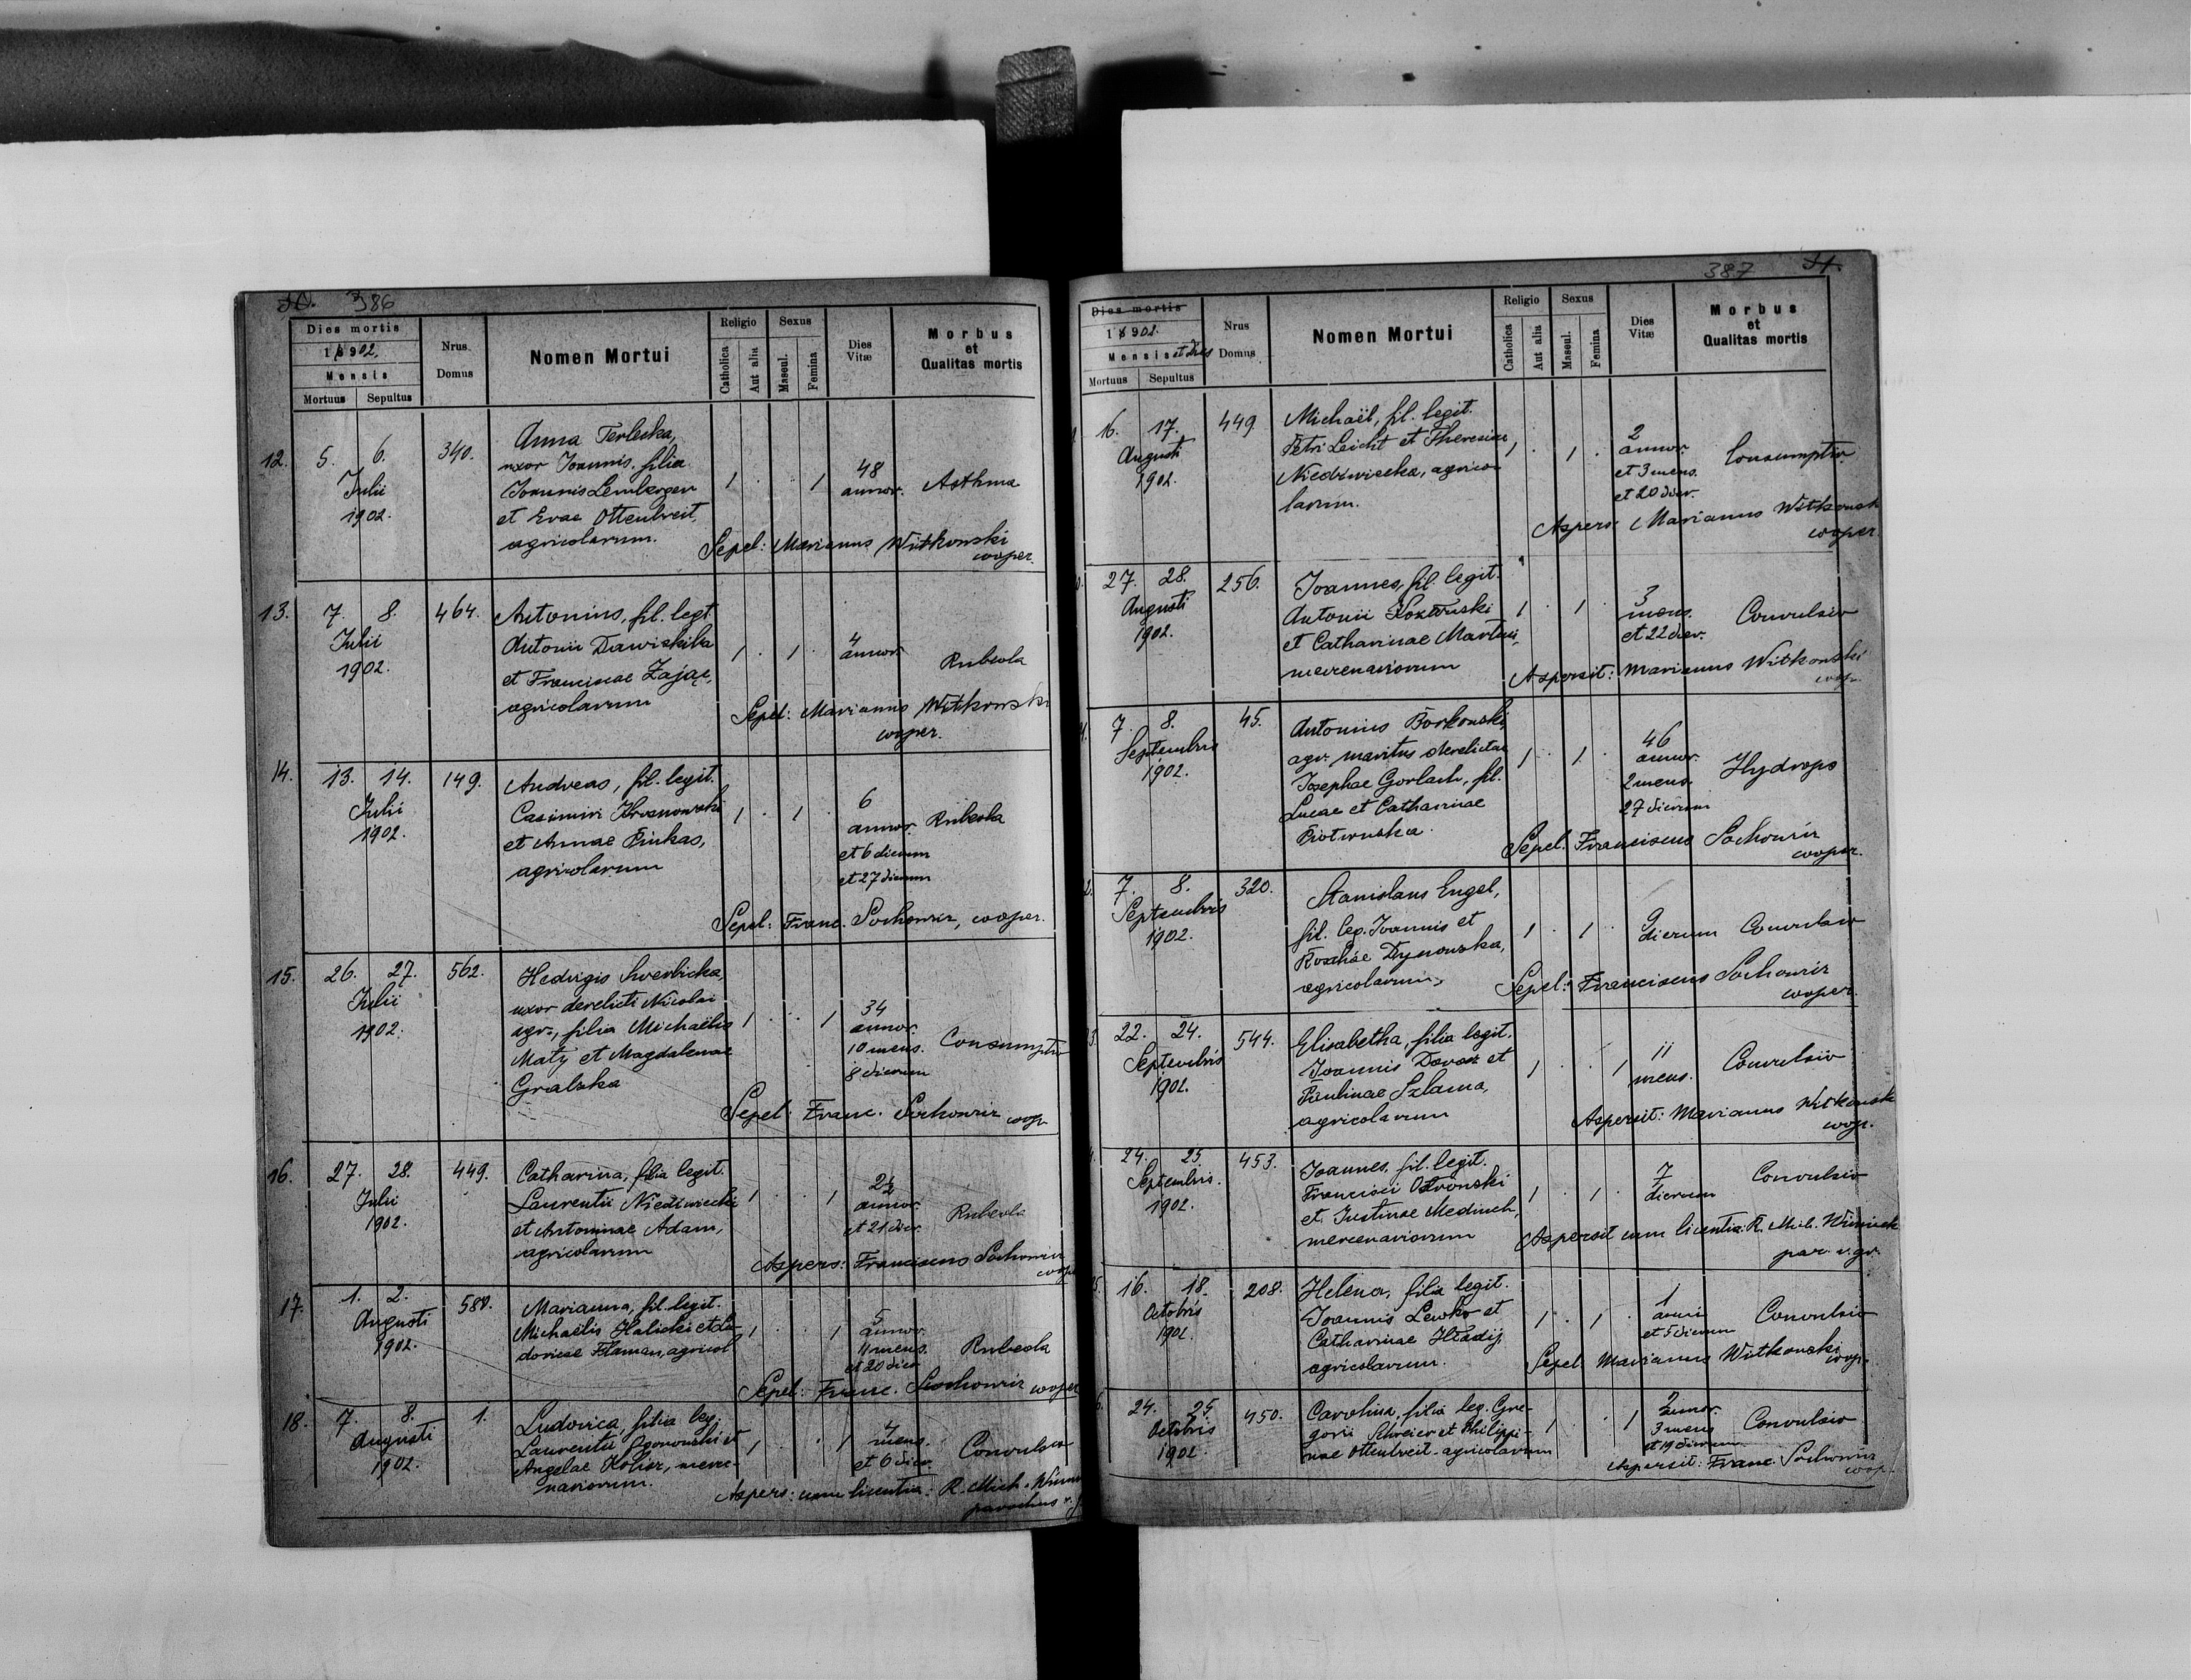 386
Dies mortis
1902.
Mensis
Mortuus Sepultus
Nrus
Domus
Nomen Mortui
Religio
Catholica
Aut alia
Sexus
Mascul.
Femina
Dies
Vitæ
Morbus
et
Qualitas mortis
12. 5. 6. 340.
Julii
1902.
Anna Terlecka,
uxor Joannis, filia
Joannis Lemberger
et Evae Ottenbreit,
agricolarum.
1 . . 1
48
annor.
Asthma
Sepel: Marianus Witkowski
cooper.
13. 7. 8. 464.
Julii
1902.
Antonius, fil. legt
Antonii Dawiskiba
et Franciscae Zając,
agricolarum
1 . 1 .
4
annor.
Rubeola
Sepel: Marianus Witkowski
cooper.
14. 13. 14. 149.
Julii
1902.
Andreas, fil. legit.
Casimiri
et Annae Pinkas,
agricolarum
1 . 1 .
6
annor.
et 6 dierum
et 27 dierum
Rubeola
Sepel: Franc. Sochowicz, cooper.
15. 26. 27. 562.
Julii
1902.
Hedvigis Swerbicka,
uxor derelicti Nicolai
agr., filia Michaëlis
Maty et Magdalenae
Gralska
1 . . 1
34
annor.
10 mens.
8 dierum
Consumptio
Sepel: Franc. Sochowicz
coop.
16. 27. 28. 449.
Julii
1902.
Catharina, filia legit.
Laurentii Niedzwiecki
et Antoninae Adam,
agricolarum
1 . . 1
annor.
et 21 dier.
Rubeola
Aspers: Franciscus Sochowicz
coop.
17. 1. 2. 580.
Augusti
1902.
Marianna, fil. legit.
Michaëlis Halicki et Lu-
dovicae Flaman, agricol
1 . . 1
5
annor.
4 mens.
et 20 dier.
Rubeola
Sepel: Franc. Sochowicz cooper
18. 7. 8. 1.
Augusti
1902.
Ludovica, filia leg.
Laurentii Ogonowski et
Angelae Kolier, merce-
nariorum.
1 . . 1
4
mens.
et 6 dier.
Convulsio
Aspers: cum licentia: R. Mich.
parochus
387
Dies mortis
1902.
Mensis et dies
Mortuus Sepultus
Nrus
Domus
Nomen Mortui
Religio
Catholica
Aut alia
Sexus
Mascul.
Femina
Dies
Vitæ
Morbus
et
Qualitas mortis
16. 17. 449.
Augusti
1902.
Michaël, fil. legit.
Petri Leicht et Theresiae
Niedzwiecka, agrico-
larum.
1 . 1 .
2
annor.
et 3 mens.
et 20 dier.
Consumptio
Aspers: Marianus Witkowsk
cooper.
27. 28. 256.
Augusti
1902.
Joannes, fil. legit.
Antonii
et Catharinae
mercenariorum
1 . 1 .
3
mens.
et 22 dier.
Convulsio
Aspersit: Marianus Witkowski
coop.
7. 8. 45.
Septembris
1902.
Antonius Borkowski,
agr. maritus derelictae
Josephae Gorlach, fil.
Lucae et Catharinae
Piotrowska.
1 . 1 .
46
annor.
2 mens.
27 dierum
Hydrops
Sepel: Franciscus Sochowicz
cooper.
7. 8. 320.
Septembris
1902.
Stanislaus Engel,
fil. leg. Joannis et
Rosaliae Dynowska,
agricolarum,
1 . 1 .
9
dierum
Convulsio
Sepel: Franciscus Sochowicz
cooper.
22. 24. 544.
Septembris
1902.
Elisabetha, filia legit.
Joannis et
Paulinae Szlama,
agricolarum
1 . . 1
11
mens.
Convulsio
Aspersit: Marianus Witkowsk
coop.
24. 25 453.
Septembris.
1902.
Joannes, fil. legit.
Francisci Ostronski
et Justinae Medinch,
mercenariorum
1 . 1 .
7
dierum
Convulsio
Aspersit cum licentia: R. Mich.
par. r. gr.
16. 18. 208.
Octobris
1902.
Helena, filia legit.
Joannis Lewko et
Catharinae
agricolarum.
1 . 1 .
1
anni
et 5 dierum
Convulsio
Sepel Marianus Witkowski
coop.
24. 25. 450.
Octobris
1902.
Carolina, filia leg. Gre-
gorii Schreier et Philippi-
nae Ottenbreit agricolarum
1 . . 1
2
annor.
3 mens
et 19 dierum
Convulsio
Aspersit: Franc. Sochowicz
coop.